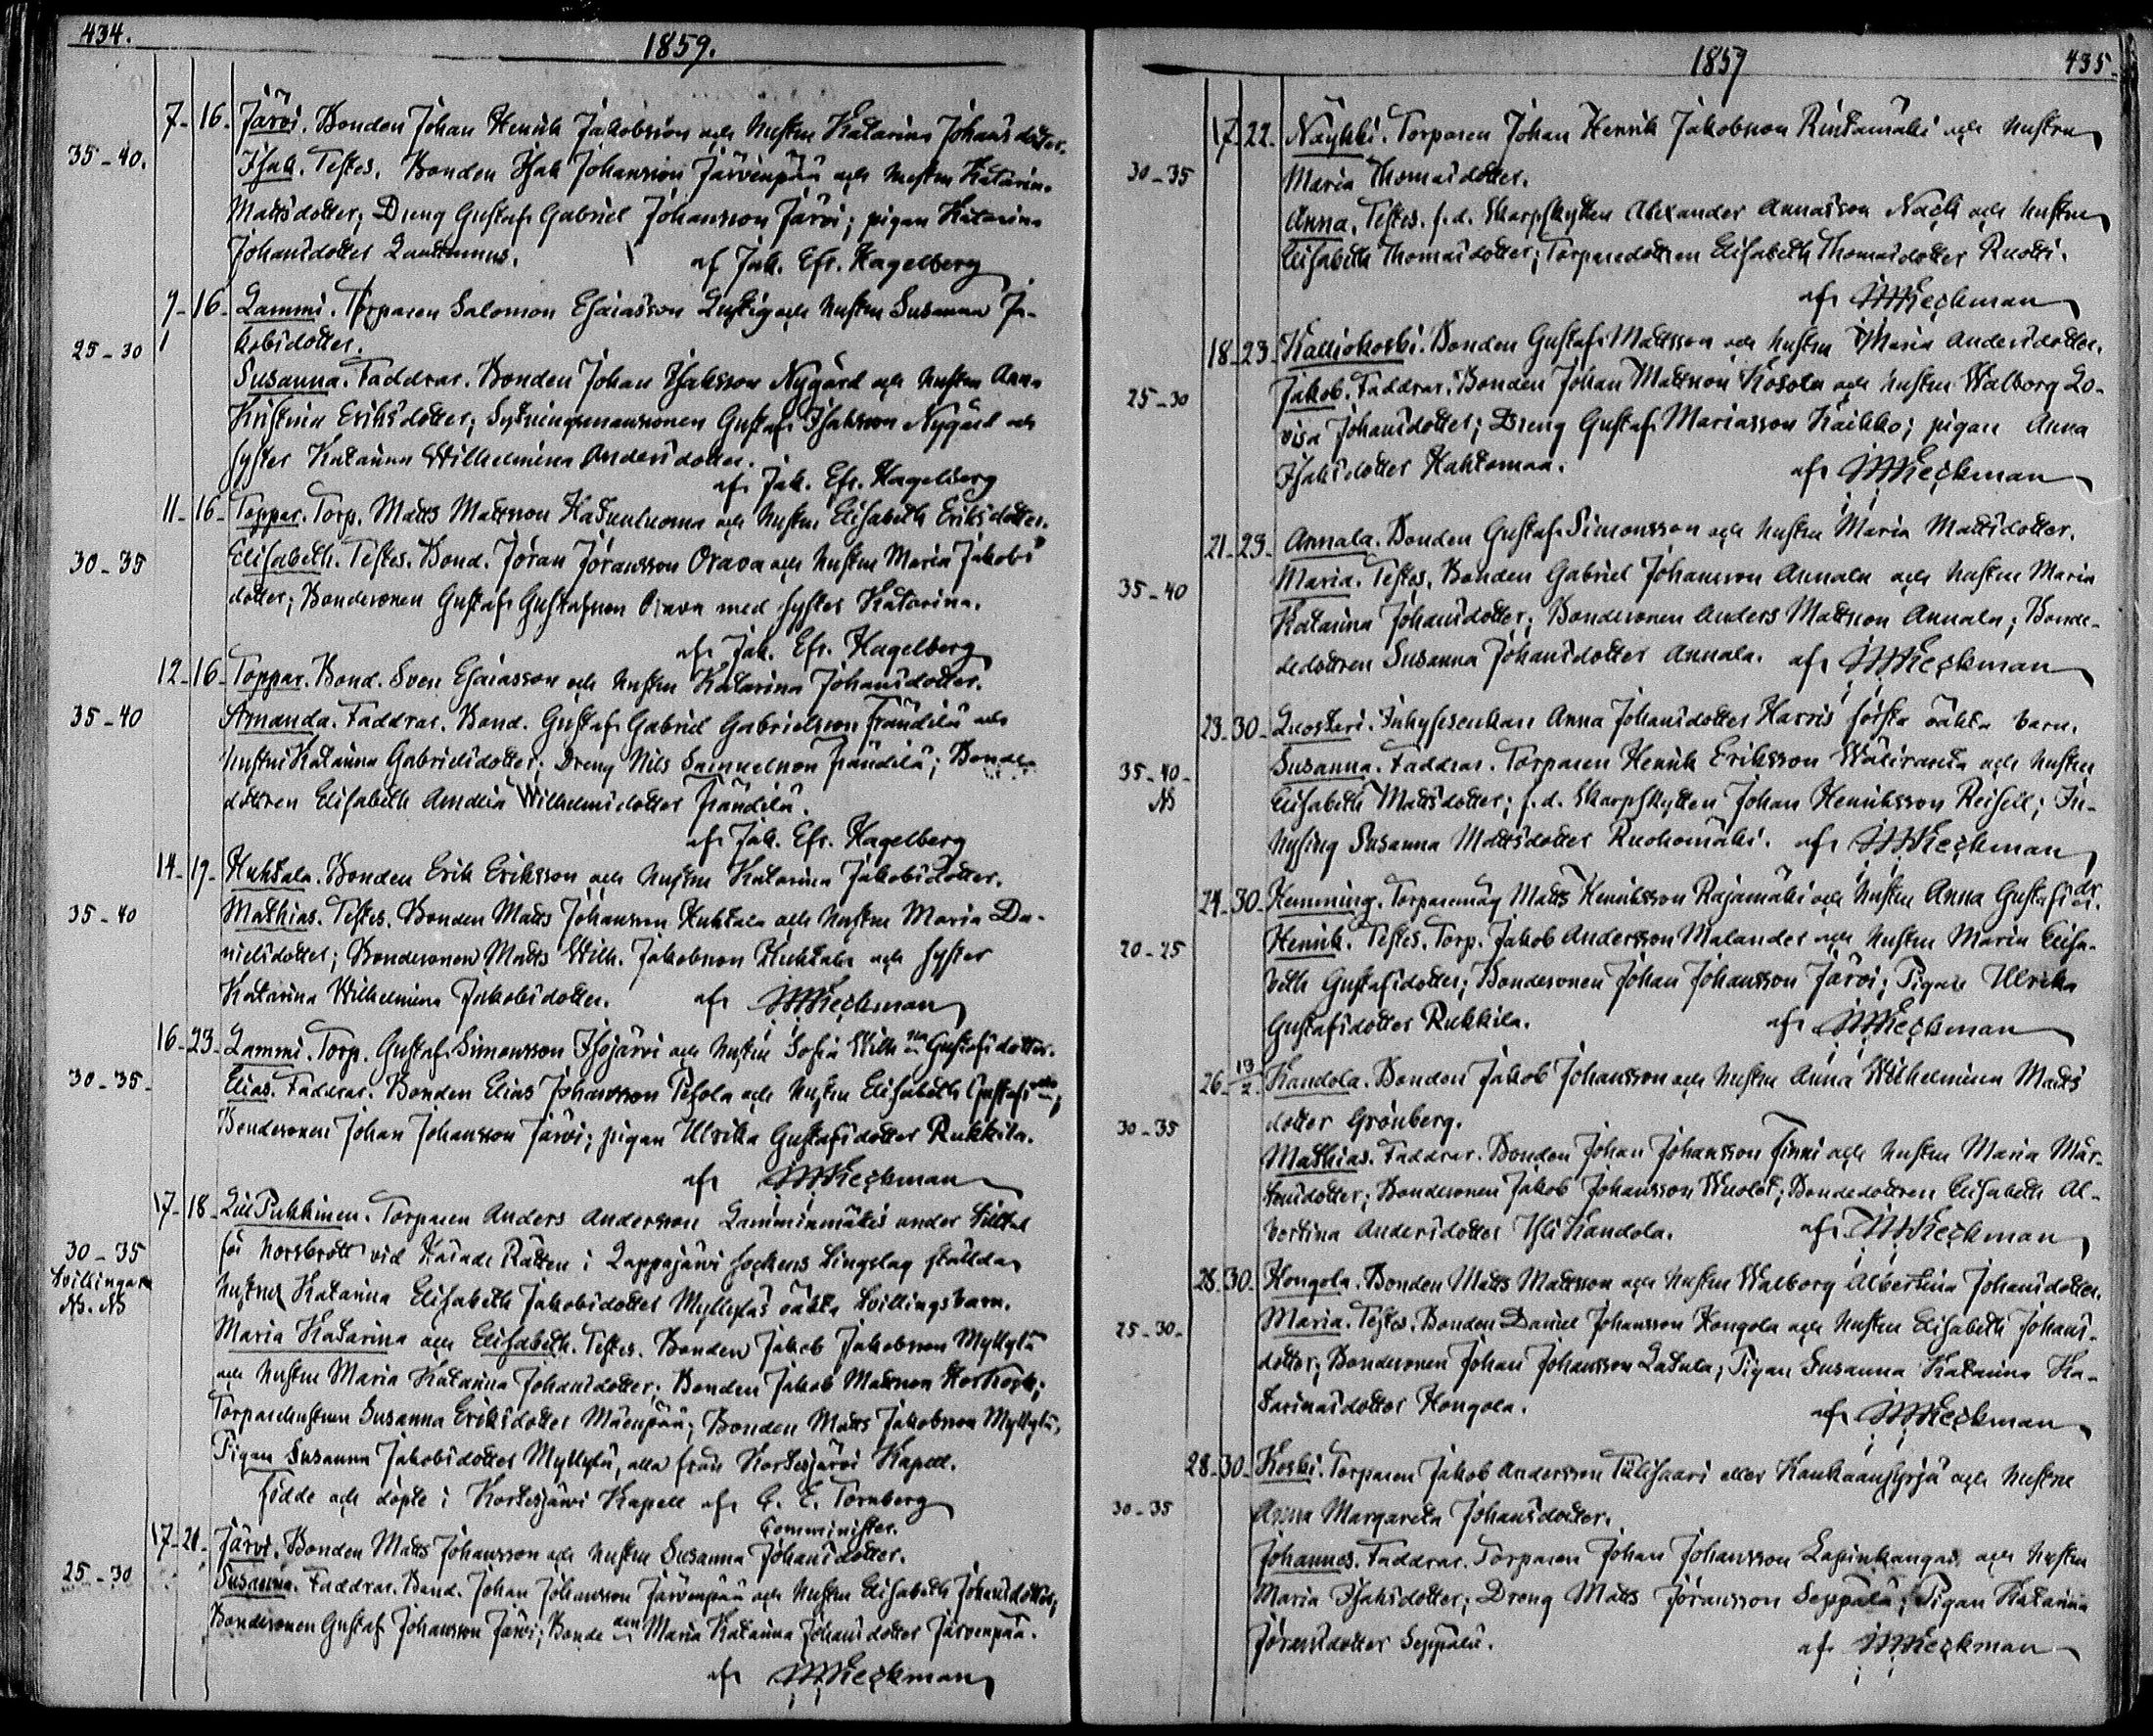 434.
1859.
7-16. Järvi. Bonden Johan Henrik Jakobsson och hustru Katarina Johansdotter.
35-40. Isak. Testes. Bonden Isak Johansson Järvenpää och hustru Katarina
Mattsdotter; Dreng Gustaf Gabriel Johansson Järvi; pigan Katarina
Johansdotter
af Jak. Efr. Hagelberg
9-16. Lammi. Torparen Salomon Esaiasson och hustru Susanna Ja-
25-30 kobsdotter.
Susanna. Faddrar. Bonden Johan Isaksson Nygård och hustru Anna
Kristina Eriksdotter; Gustaf Isaksson Nygård och
syster Katarina Wilhelmina Andersdotter.
af Jak. Efr. Hagelberg
11-16- Toppar. Torp. Matts Mattsson och hustru Elisabeth Eriksdotter.
30-35 Elisabeth. Testes. Bond. Jöran Jöransson Orava och hustru Maria Jakobs
dotter; Bondesonen Gustaf Gustafsson Orava med syster Katarina.
af Jak. Efr. Hagelberg
12-16- Toppar. Bond. Sven Esaiasson och hustru Katarina Johansdotter.
35-40 Amanda. Faddrar. Bond. Gustaf Gabriel Gabrielsson Frändilä och
hustru Katarina Gabrielsdotter; Dreng Nils Samuelsson Frändilä; Bonde
dottren Elisabeth Amalia Wilhelmsdotter Frändilä.
af Jak. Efr. Hagelberg
14-19- Huhtala. Bonden Erik Eriksson och hustru Katarina Jakobsdotter.
35-40 Mathias. Testes. Bonden Matts Johansson Huhtala och hustru Maria Da-
nielsdotter; Bondesonen Matts Wilh. Jakobsson Huhtala och syster
Katarina Wilhelmina Jakobsdotter. af Keckman
16-23- Lammi. Torp. Gustaf Simonsson Isojärvi och hustru Sofia Wilh na Gustafsdotter.
30-35- Elias. Faddrar. Bonden Elias Johansson Pesola och hustru Elisabeth Gustafs
Bondesonen Johan Johansson Järvi; pigan Ulrika Gustafsdotter Rukkila.
af Keckman
17-18- Lill Pukkinen. Torparen Anders Andersson Lamminmäkis under tilltal
30-35 för horsbrott vid Härads Rätten i Lappajärvi sockens tingslag ställda
tvillingar hustrus Katarina Elisabeth Jakobsdotter Myllyläs oäkta tvillingsbarn.
Maria Katarina och Elisabeth. Testes. Bonden Jakob Jakobsson Myllylä
och hustru Maria Katarina Johansdotter; Bonden Jakob Mattsson
Torparehustrun Susanna Eriksdotter Mäenpää; Bonden Matts Jakobsson Myllylä,
Pigan Susanna Jakobsdotter Myllylä, alla från Kortesjärvi Kapell.
Födde och döpte i Kortesjärvi Kapell af G. E. Tornberg
Comminister.
17-21- Järvi. Bonden Matts Johansson och hustru Susanna Johansdotter.
25-30 Susanna. Faddrar. Bond. Johan Johansson Järvenpää och hustru Elisabeth Johansdotter;
Bondesonen Gustaf Johansson Järvi; Bonde Maria Katarina Johansdotter Järvenpää.
af Keckman
1859
435.
17-22- Näykki. Torparen Johan Henrik Jakobsson Rintamäki och hustru
30-35 Maria Thomasdotter.
Anna. Testes. f.d. Skarpskytten Alexander Annasson Näck och hustru
Elisabeth Thomasdotter; Torparedottren Elisabeth Thomasdotter Ruotti.
af Keckman
18-23- Kalliokoski. Bonden Gustaf Mattsson och hustru Maria Andersdotter.
25-30 Jakob. Faddrar. Bonden Johan Mattsson Kosola och hustru Walborg Lo-
visa Johansdotter; Dreng Gustaf Mariasson Kaikko; pigan Anna
Isaksdotter Hahtomaa. af Keckman
21-23- Annala. Bonden Gustaf Simonsson och hustru Maria Mattsdotter.
35-40 Maria. Testes. Bonden Gabriel Johansson Annala och hustru Maria
Katarina Johansdotter; Bondesonen Anders Mattsson Annala; Bonde-
dedottren Susanna Johansdotter Annala. af Keckman
23-30- Luostari. Inhysesenkan Anna Johansdotter Harris första oäkta barn.
35-40- Susanna. Faddrar. Torparen Henrik Eriksson och hustru
Elisabeth Mattsdotter; f.d. Skarpskytten Johan Henriksson; In-
hysing Susanna Mattsdotter Ruohomäki. af Keckman
24-30- Hemming. Torparemåg Matts Henriksson Rajamäki och hustru Anna Gustafs dr.
20-25 Henrik. Testes. Torp. Jakob Andersson Malander och hustru Maria Elisa-
beth Gustafsdotter; Bondesonen Johan Johansson Järvi; Pigan Ulrika
Gustafsdotter Rukkila. af Keckman
26- 13/2 Kandola. Bonden Jakob Johansson och hustru Anna Wilhelmina Matts
30-35 dotter Grönberg.
Mathias. Faddrar. Bonden Johan Johansson Finni och hustru Maria Mår-
tensdotter; Bondesonen Jakob Johansson; Bondedottren Elisabeth Al-
bertina Andersdotter Yli Kandola. af Keckman
28-30- Hongola. Bonden Matts Mattsson och hustru Walborg Albertina Johansdotter.
25-30- Maria. Testes. Bonden Daniel Johansson Hongola och hustru Elisabeth Johans-
dotter; Bondesonen Johan Johansson Latula; Pigan Susanna Katarina Ka-
tarinasdotter Hongola. af Keckman
28-30- Koski. Torparen Jakob Andersson Tulisaari eller och hustru
30-35 Anna Margareta Johansdotter.
Johannes. Faddrar. Torparen Johan Johansson Lapinkangas och hustru
Maria Isaksdotter; Dreng Matts Jöransson Seppälä; Pigan Katarina
Jöransdotter Seppälä. af Keckman